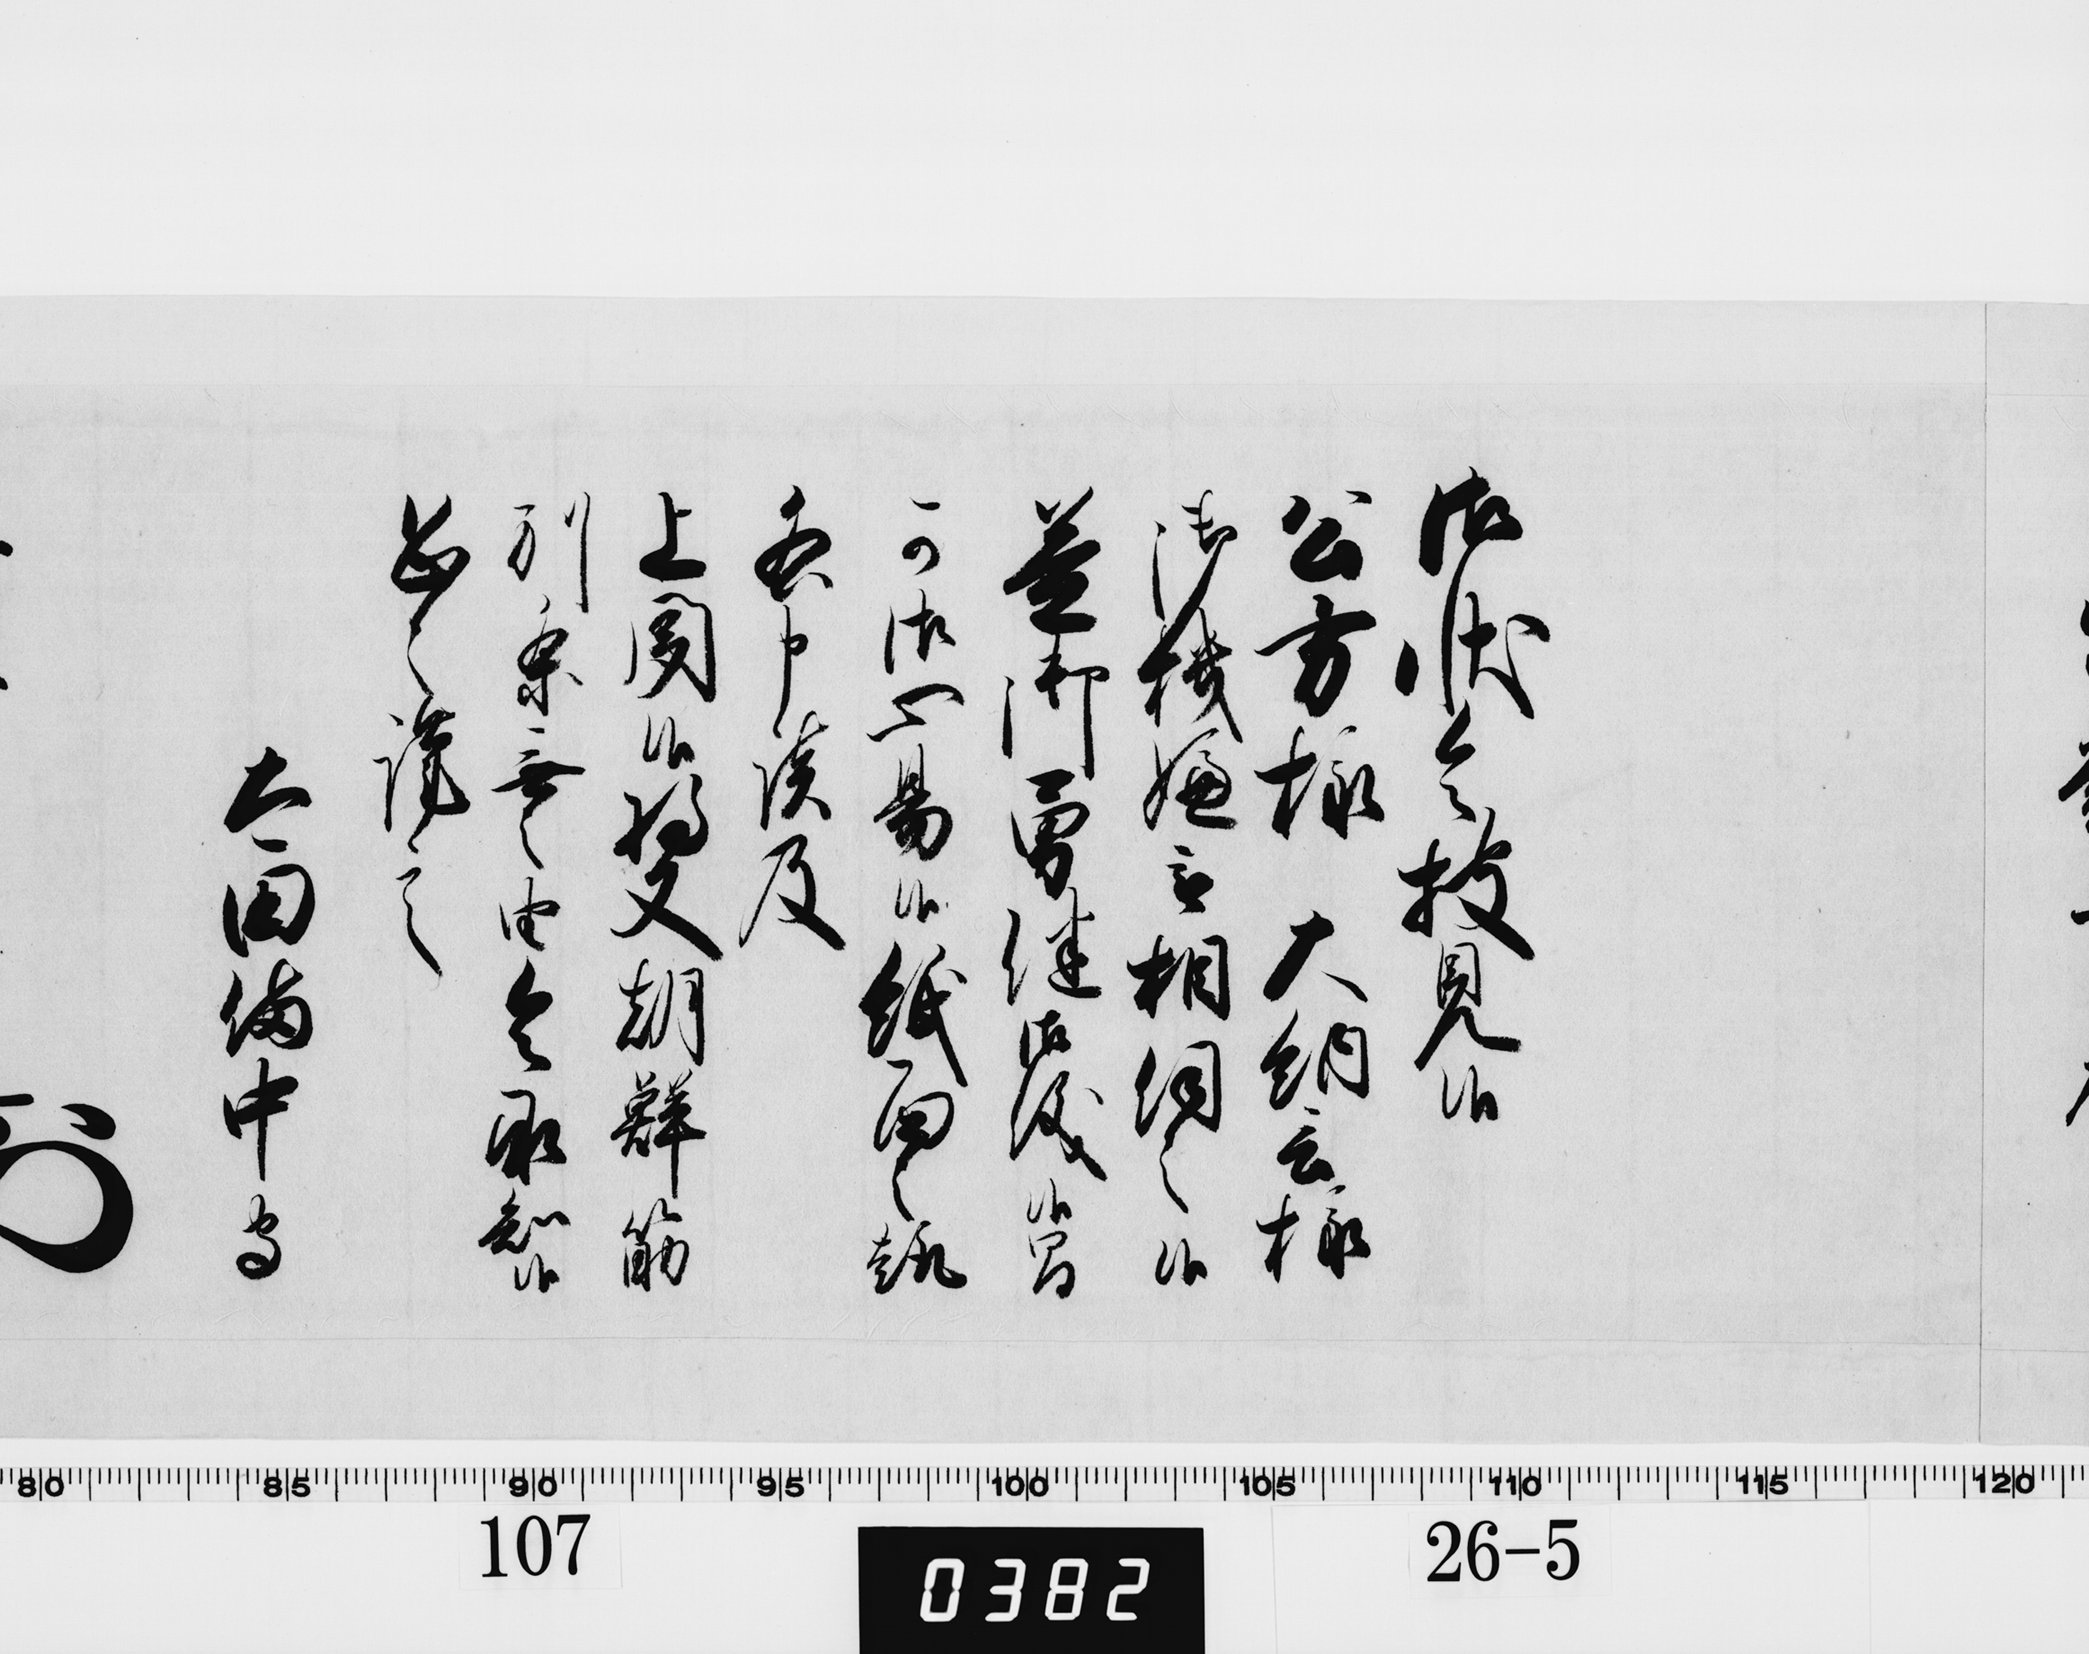 御状令披見候
公方様 大納言様
御機嫌之相伺之候
益御勇健被成御座候間
可御心易候紙面之趣
各申談及
上聞候将又朝鮮筋
別条無之由令承知候
恐々謹言
太田備中守
80 85 90 95 100 105 110 115 120
107
0382
26-5